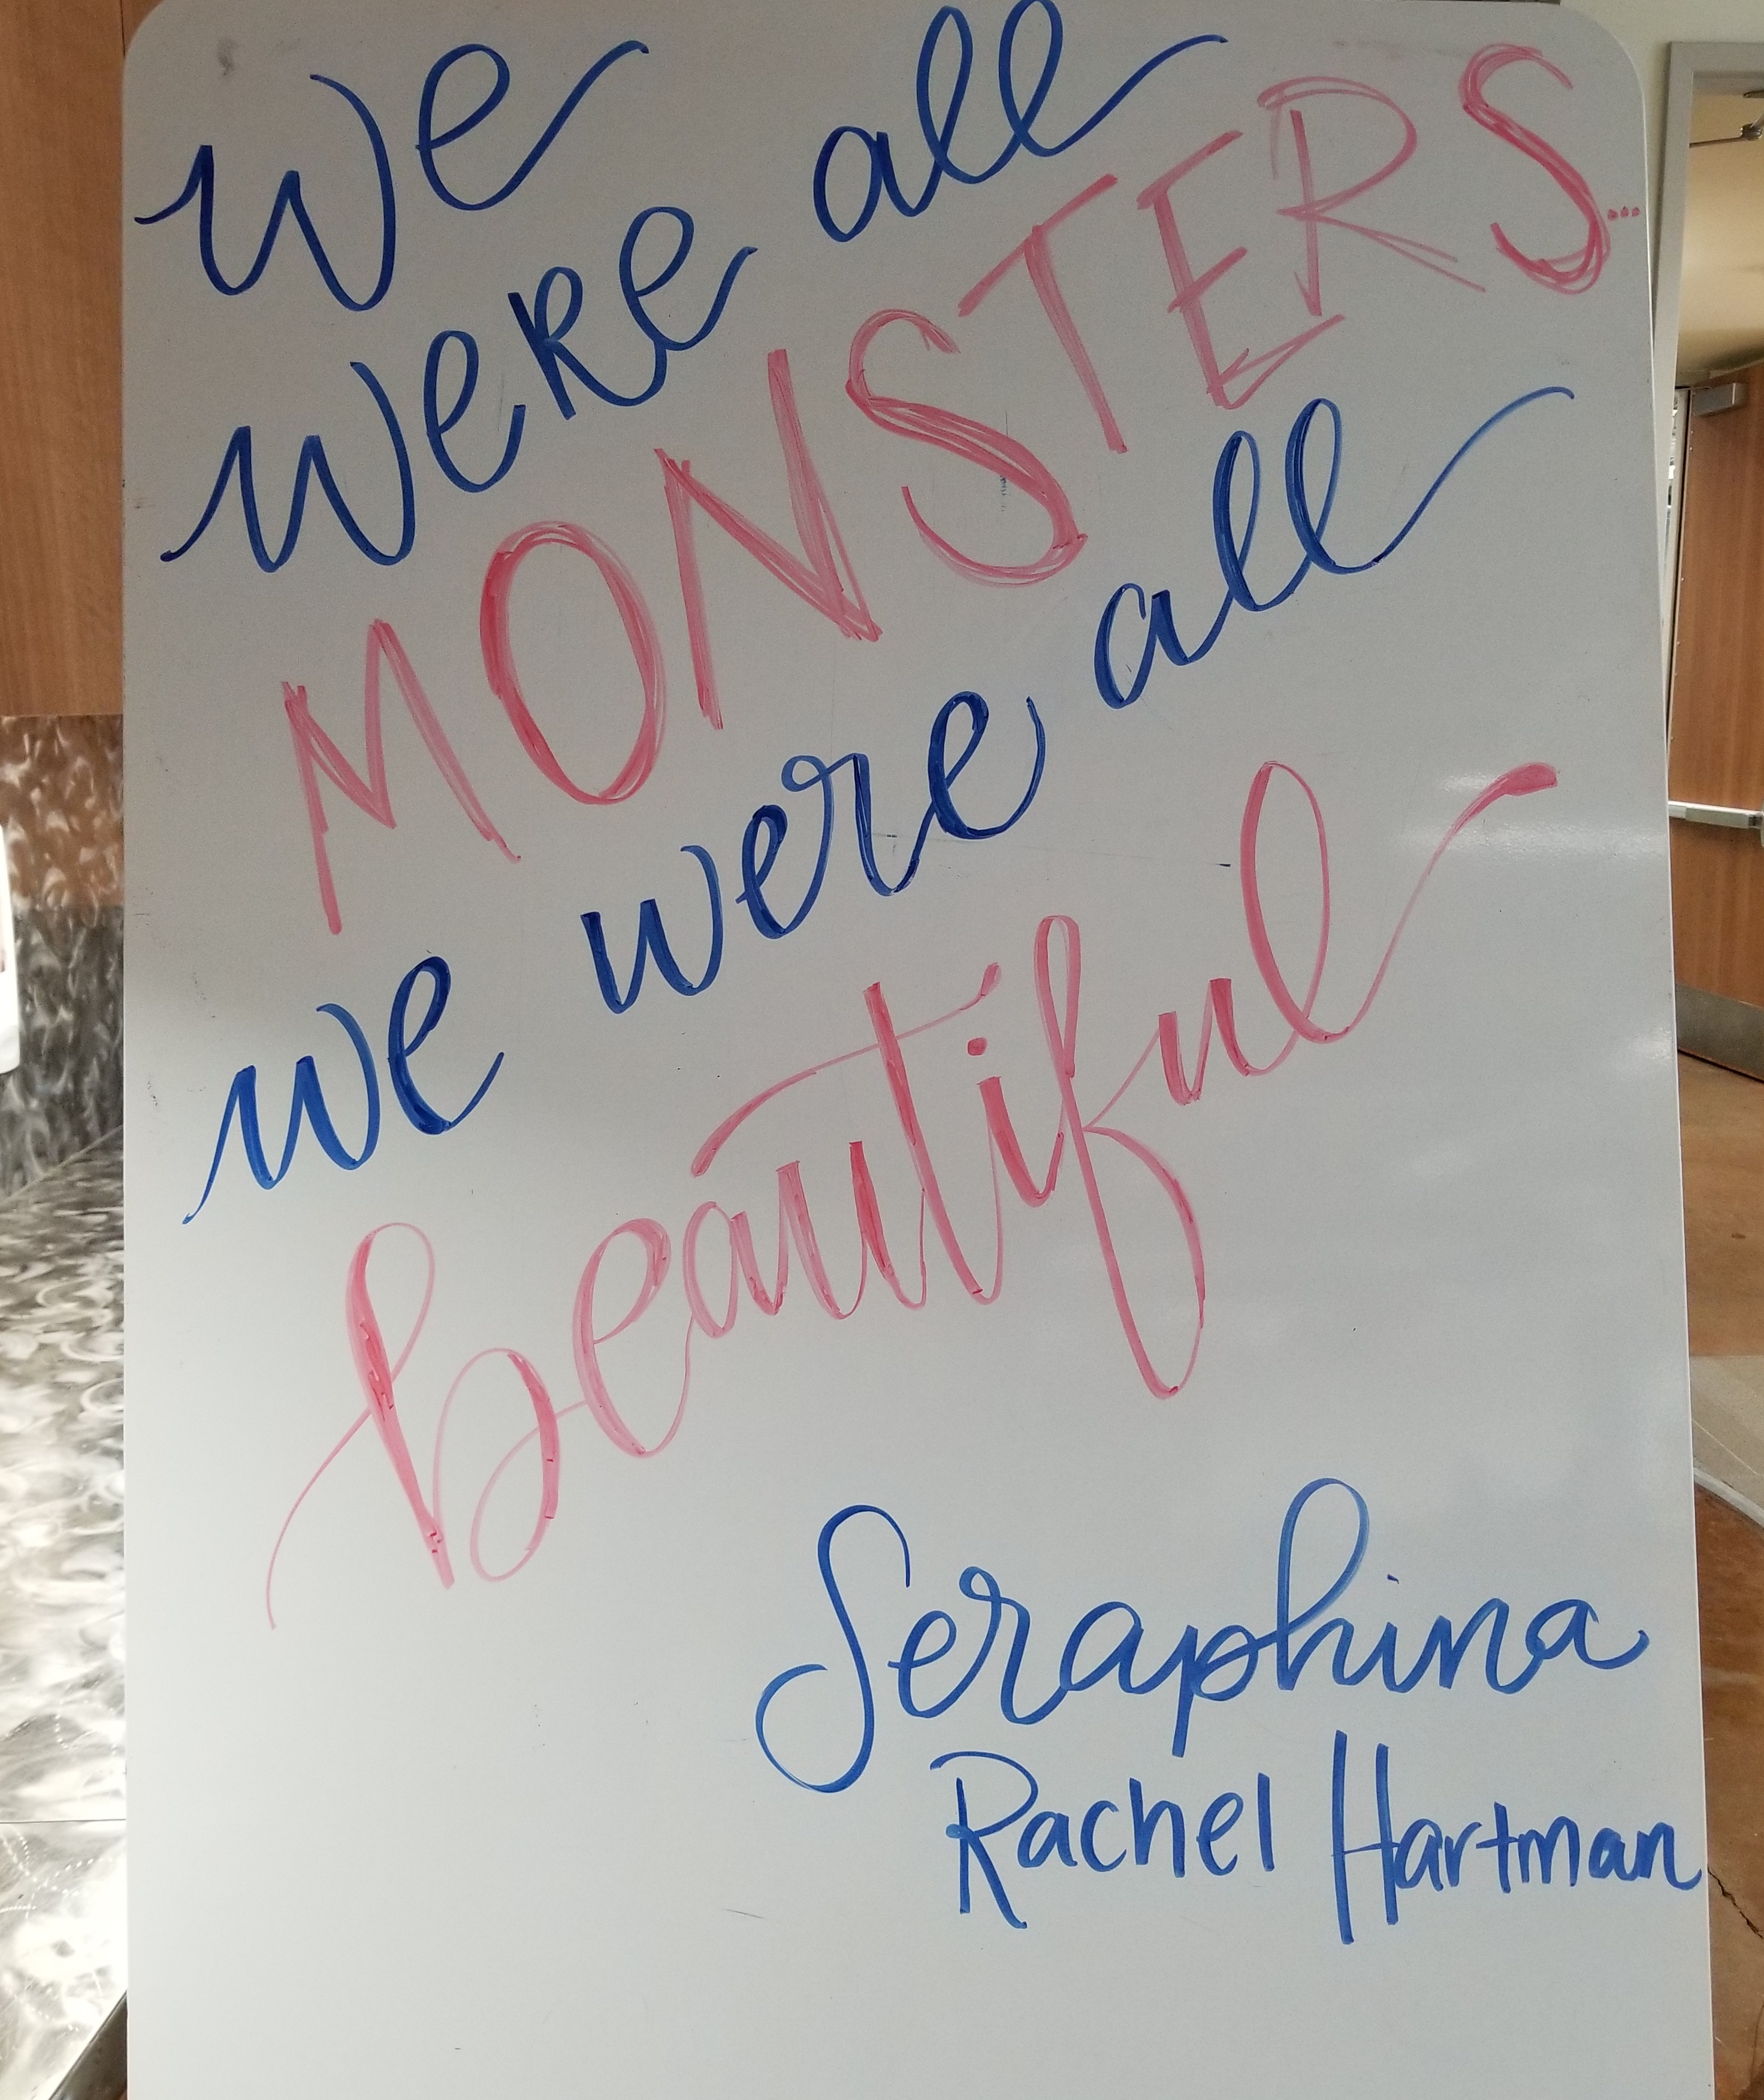 We
were all
MONSTERS...
we were all
beautiful
Seraphina
Rachel Hartman